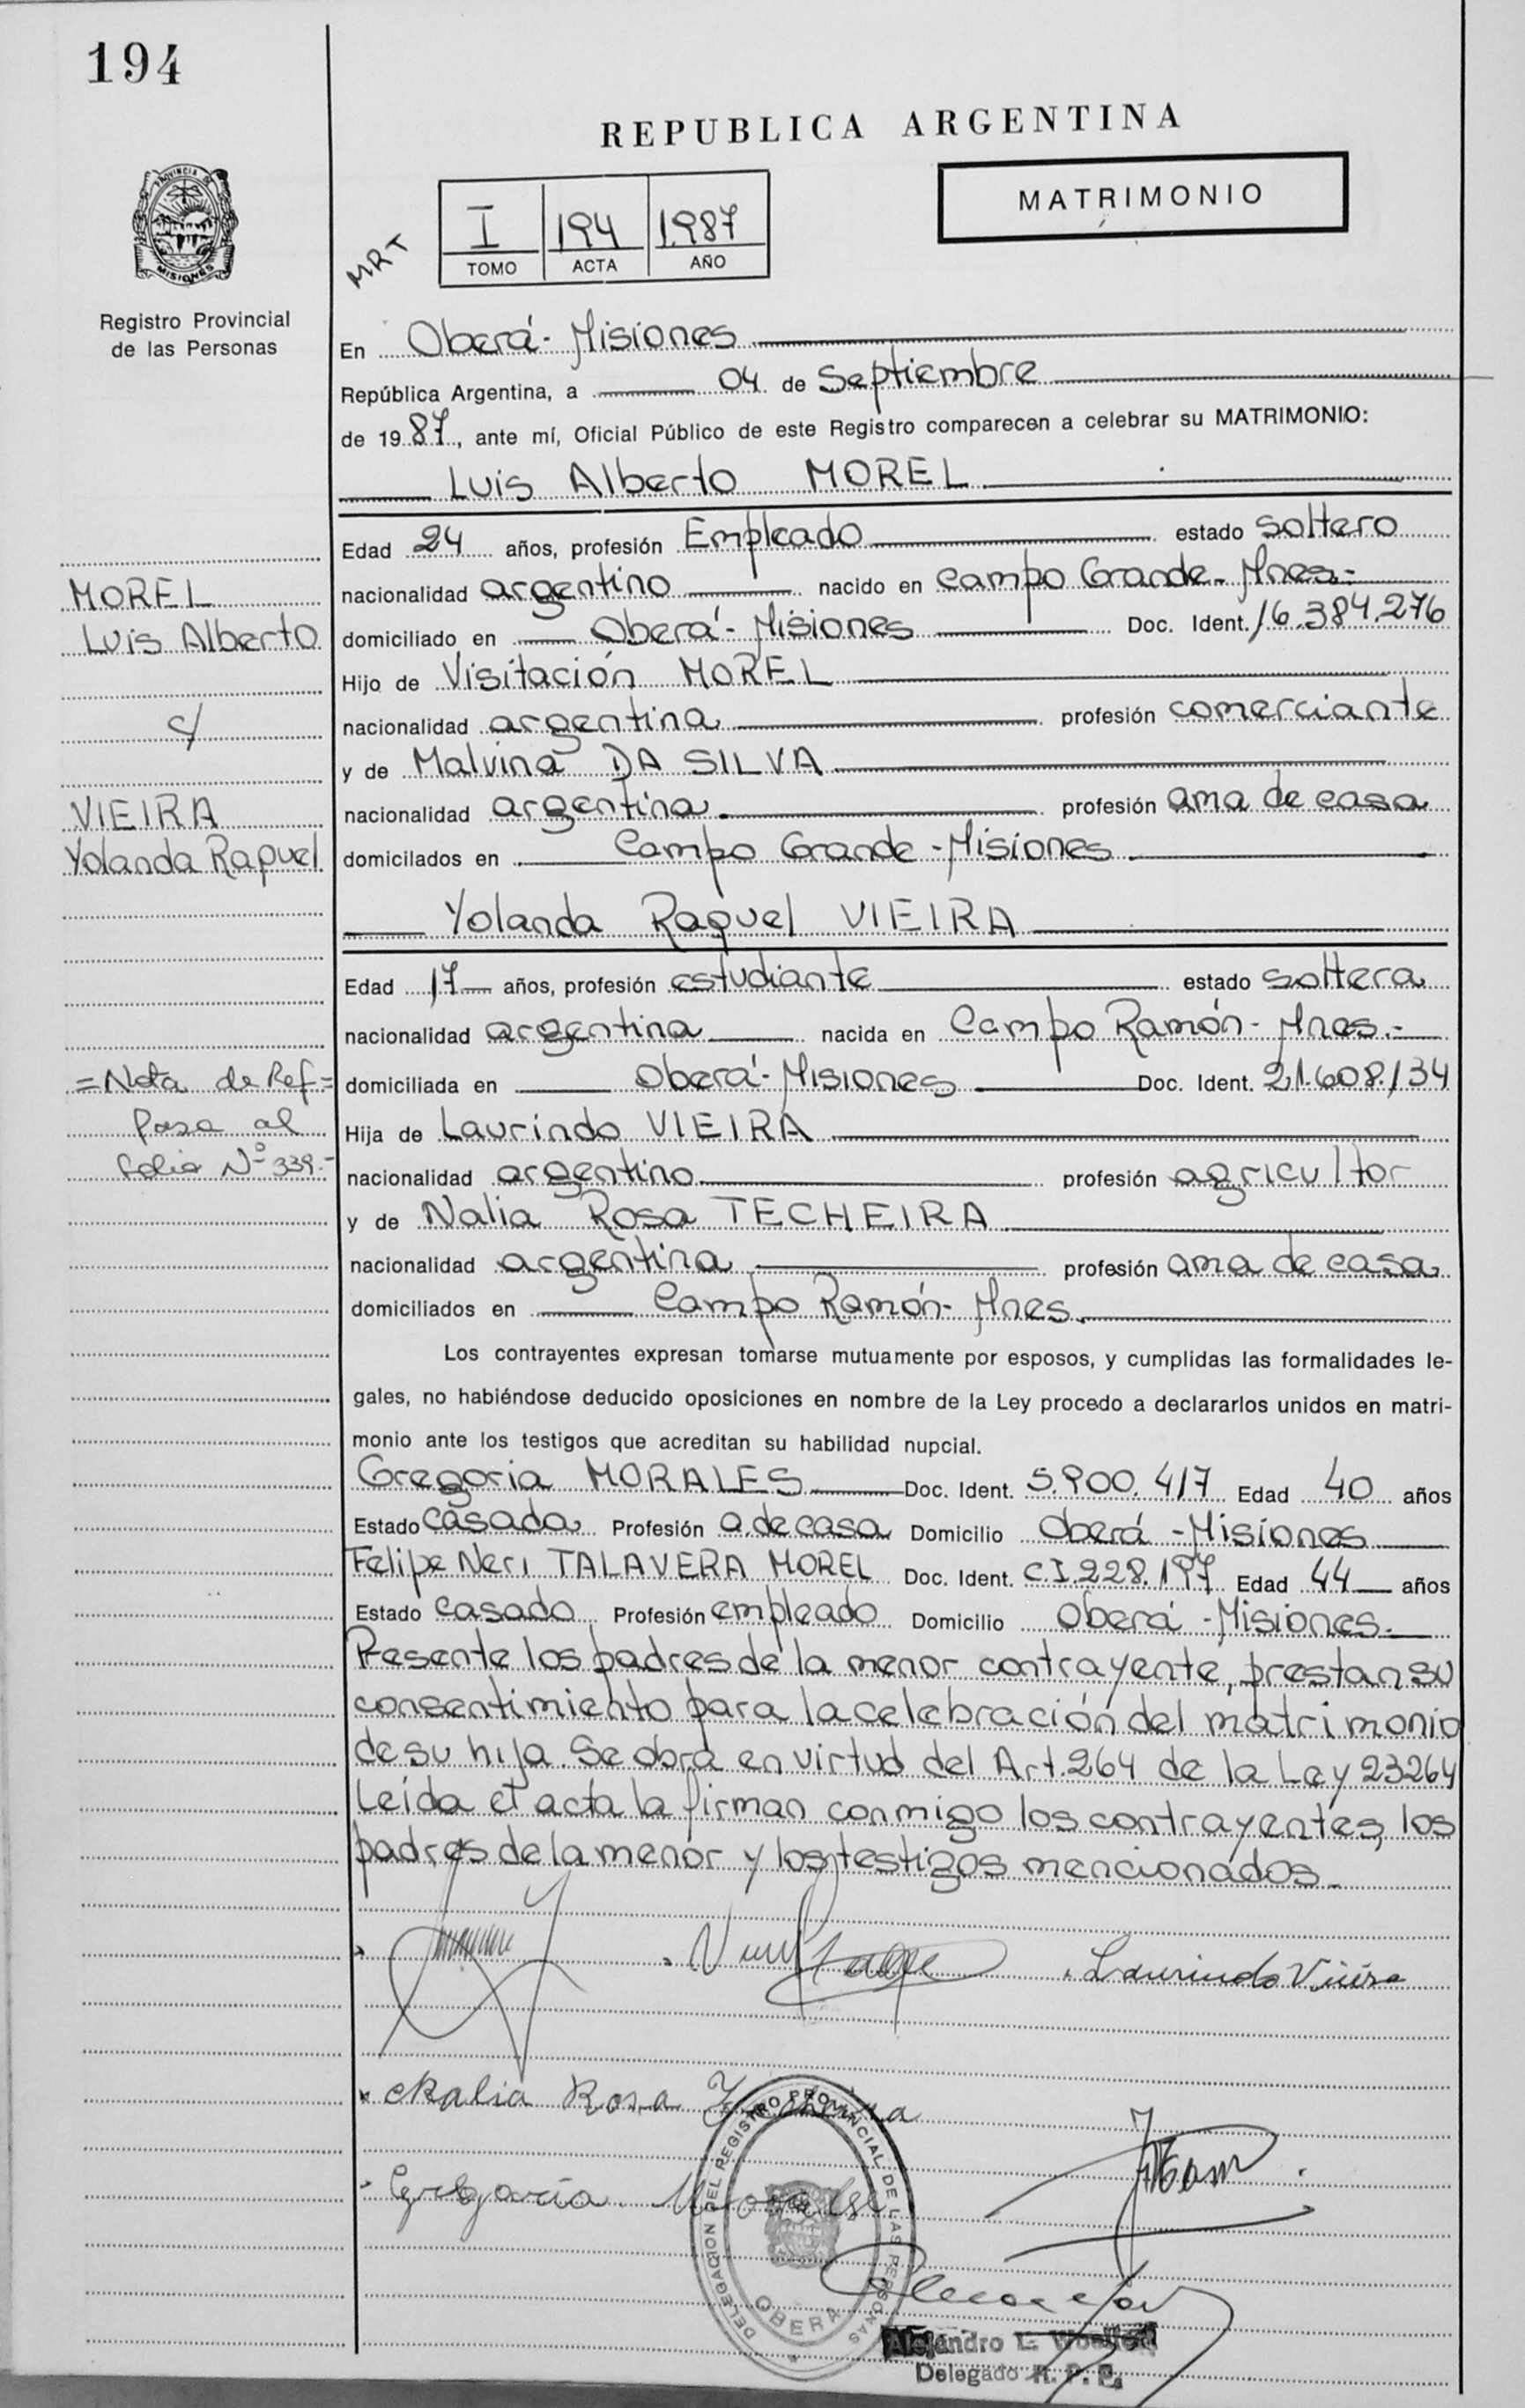 194
REPUBLICA ARGENTINA
MATRIMONIO
MRT
I 194 1987
TOMO ACTA AÑO
PROVINCIA DE MISIONES
Registro Provincial
de las Personas
En Oberá - Misiones
República Argentina, a 04 de Septiembre
de 1987, ante mí, Oficial Público de este Registro comparecen a celebrar su MATRIMONIO:
Luis Alberto MOREL
Edad 24 años, profesión Empleado estado soltero
nacionalidad argentino nacido en Campo Grande - Mnes.-
domiciliado en Oberá - Misiones Doc. Ident. 16.384.276
Hijo de Visitación MOREL
nacionalidad argentina profesión comerciante
y de Malvina DA SILVA
nacionalidad argentina profesión ama de casa
domicilados en Campo Grande - Misiones
Yolanda Raquel VIEIRA
Edad 17 años, profesión estudiante estado soltera
nacionalidad argentina nacida en Campo Ramón - Mnes.-
domiciliada en Oberá - Misiones Doc. Ident. 21.608.134
Hija de Laurindo VIEIRA
nacionalidad argentino profesión agricultor
y de Nalia Rosa TECHEIRA
nacionalidad argentina profesión ama de casa
domiciliados en Campo Ramón - Mnes.
Los contrayentes expresan tomarse mutuamente por esposos, y cumplidas las formalidades le-
gales, no habiéndose deducido oposiciones en nombre de la Ley procedo a declararlos unidos en matri-
monio ante los testigos que acreditan su habilidad nupcial.
Gregoria MORALES Doc. Ident. 5.900.417 Edad 40 años
Estado casada Profesión a.de casa Domicilio Oberá - Misiones
Felipe Neri TALAVERA MOREL Doc. Ident. C.I.228.197 Edad 44 años
Estado casado Profesión empleado Domicilio Oberá - Misiones.-
Presente los padres de la menor contrayente, prestan su
consentimiento para la celebración del matrimonio
de su hija. Se obra en virtud del Art. 264 de la Ley 23264
Leída el acta la firman conmigo los contrayentes, los
padres de la menor y los testigos mencionados.-
MOREL
Luis Alberto
c/
VIEIRA
Yolanda Raquel
= Nota de Ref =
Pasa al
folio Nº 339.-
Laurindo Vieira
Nalia Rosa Techeira
Gregoria Morales
DELEGACION DEL REGISTRO PROVINCIAL DE LAS PERSONAS
OBERA
Alejandro L.
Delegado R. P. P.